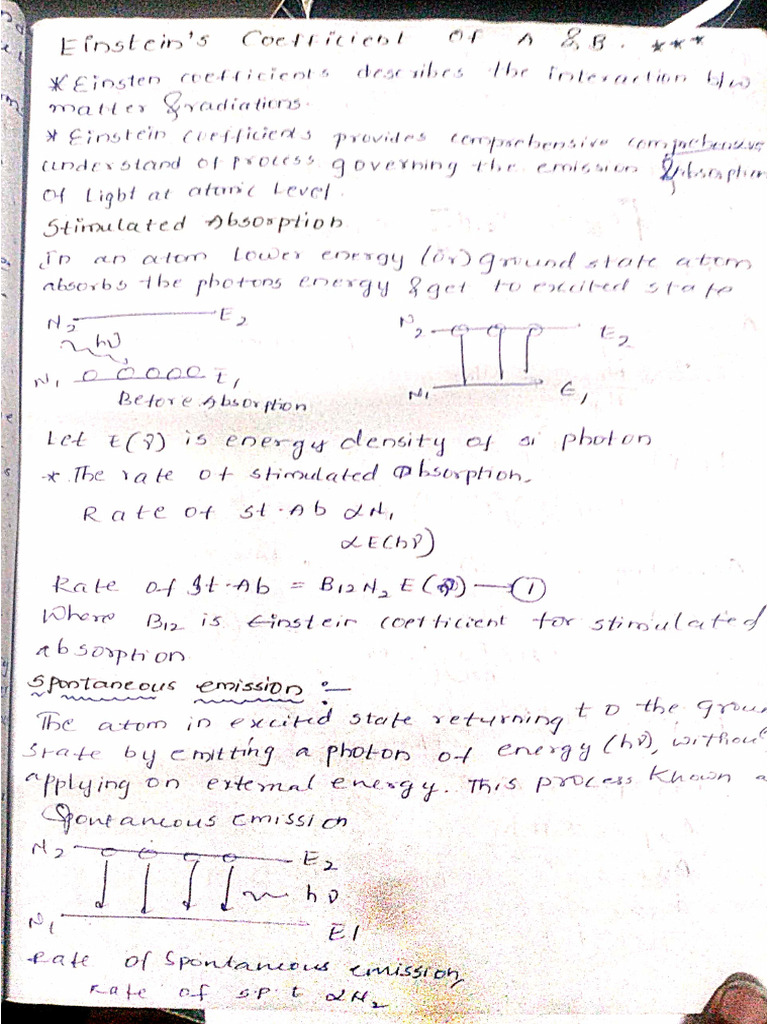 Einstein's Coefficient of A & B. ***
* Einsten coefficients describes the interaction b/w
matter & radiations.
* Einstein coefficients provides comprehensive comprehensive
understand of process governing the emission & absorption
of Light at atomic Level.
Stimulated Absorption
In an atom lower energy (or) ground state atom
absorbs the photons energy & get to excited state
N2 E2
hν
N1 E1
Before Absorption
N2 E2
N1 E1
Let E(ν) is energy density of photon
* The rate of stimulated absorption.
Rate of st.Ab ∝N1
∝E(hν)
Rate of St.Ab = B12N2 E(ν) → ①
Where B12 is Einstein coefficient for stimulated
absorption
Spontaneous emission :-
The atom in excited state returning to the groun
state by emitting a photon of energy (hν), without
applying on external energy. This process known a
Spontaneous Emission
N2 E2
hν
N1 E1
Rate of Spontaneous emission,
Rate of s.p.t ∝N2